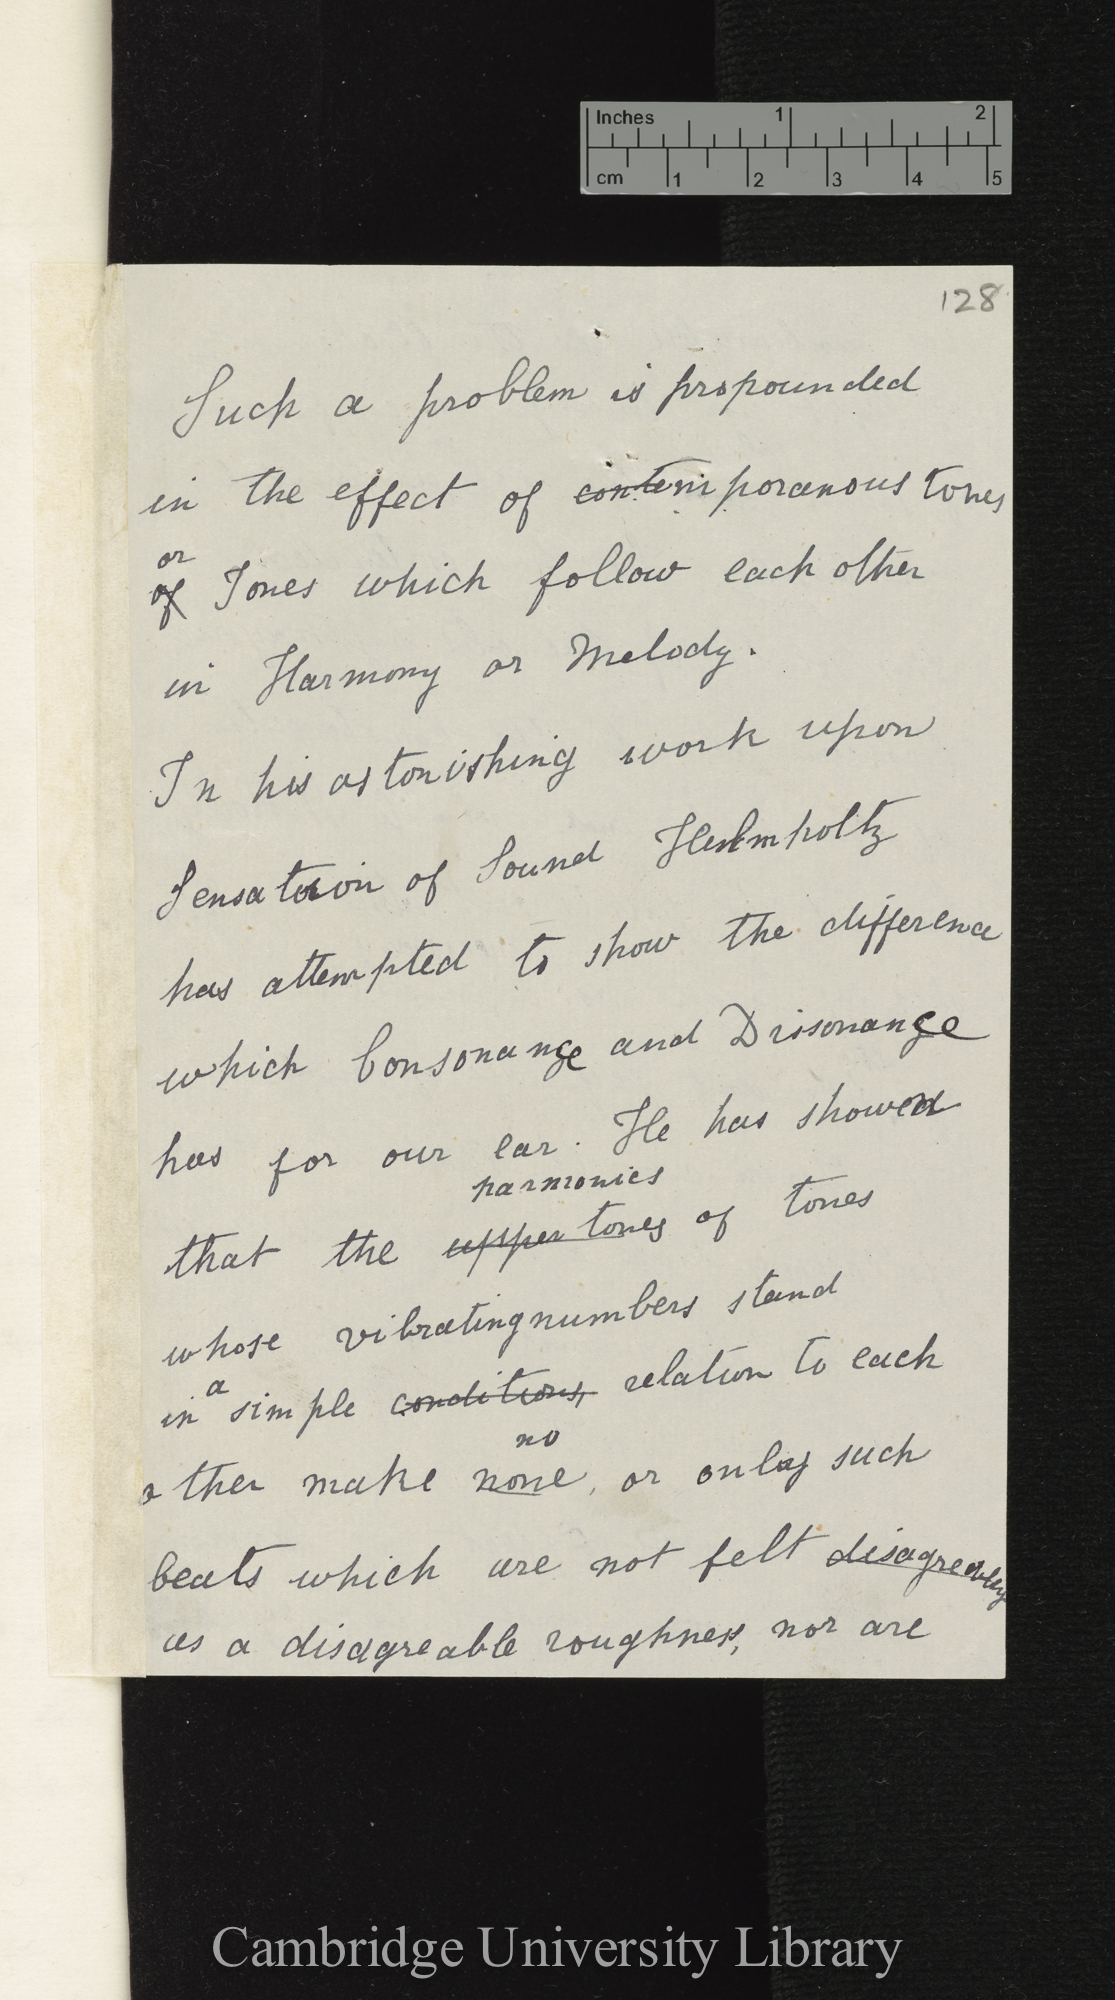 Inches 1 2
cm 1 2 3 4 5
128
Such a problem is propounded
in the effect of contemporanous tones
or
of Tones which follow each other
in Harmony or Melody.
In his astonishing work upon
Sensation of Sound Helmholtz
has attempted to show the difference
which Consonance and Dissonance
has for our ear. He has showed
harmonics
that the upper tones of tones
whose vibrating numbers stand
a
in simple conditions, relation to each
no
other make none, or only such
beats which are not felt disagreably
as a disagreable roughness, nor are
Cambridge University Library